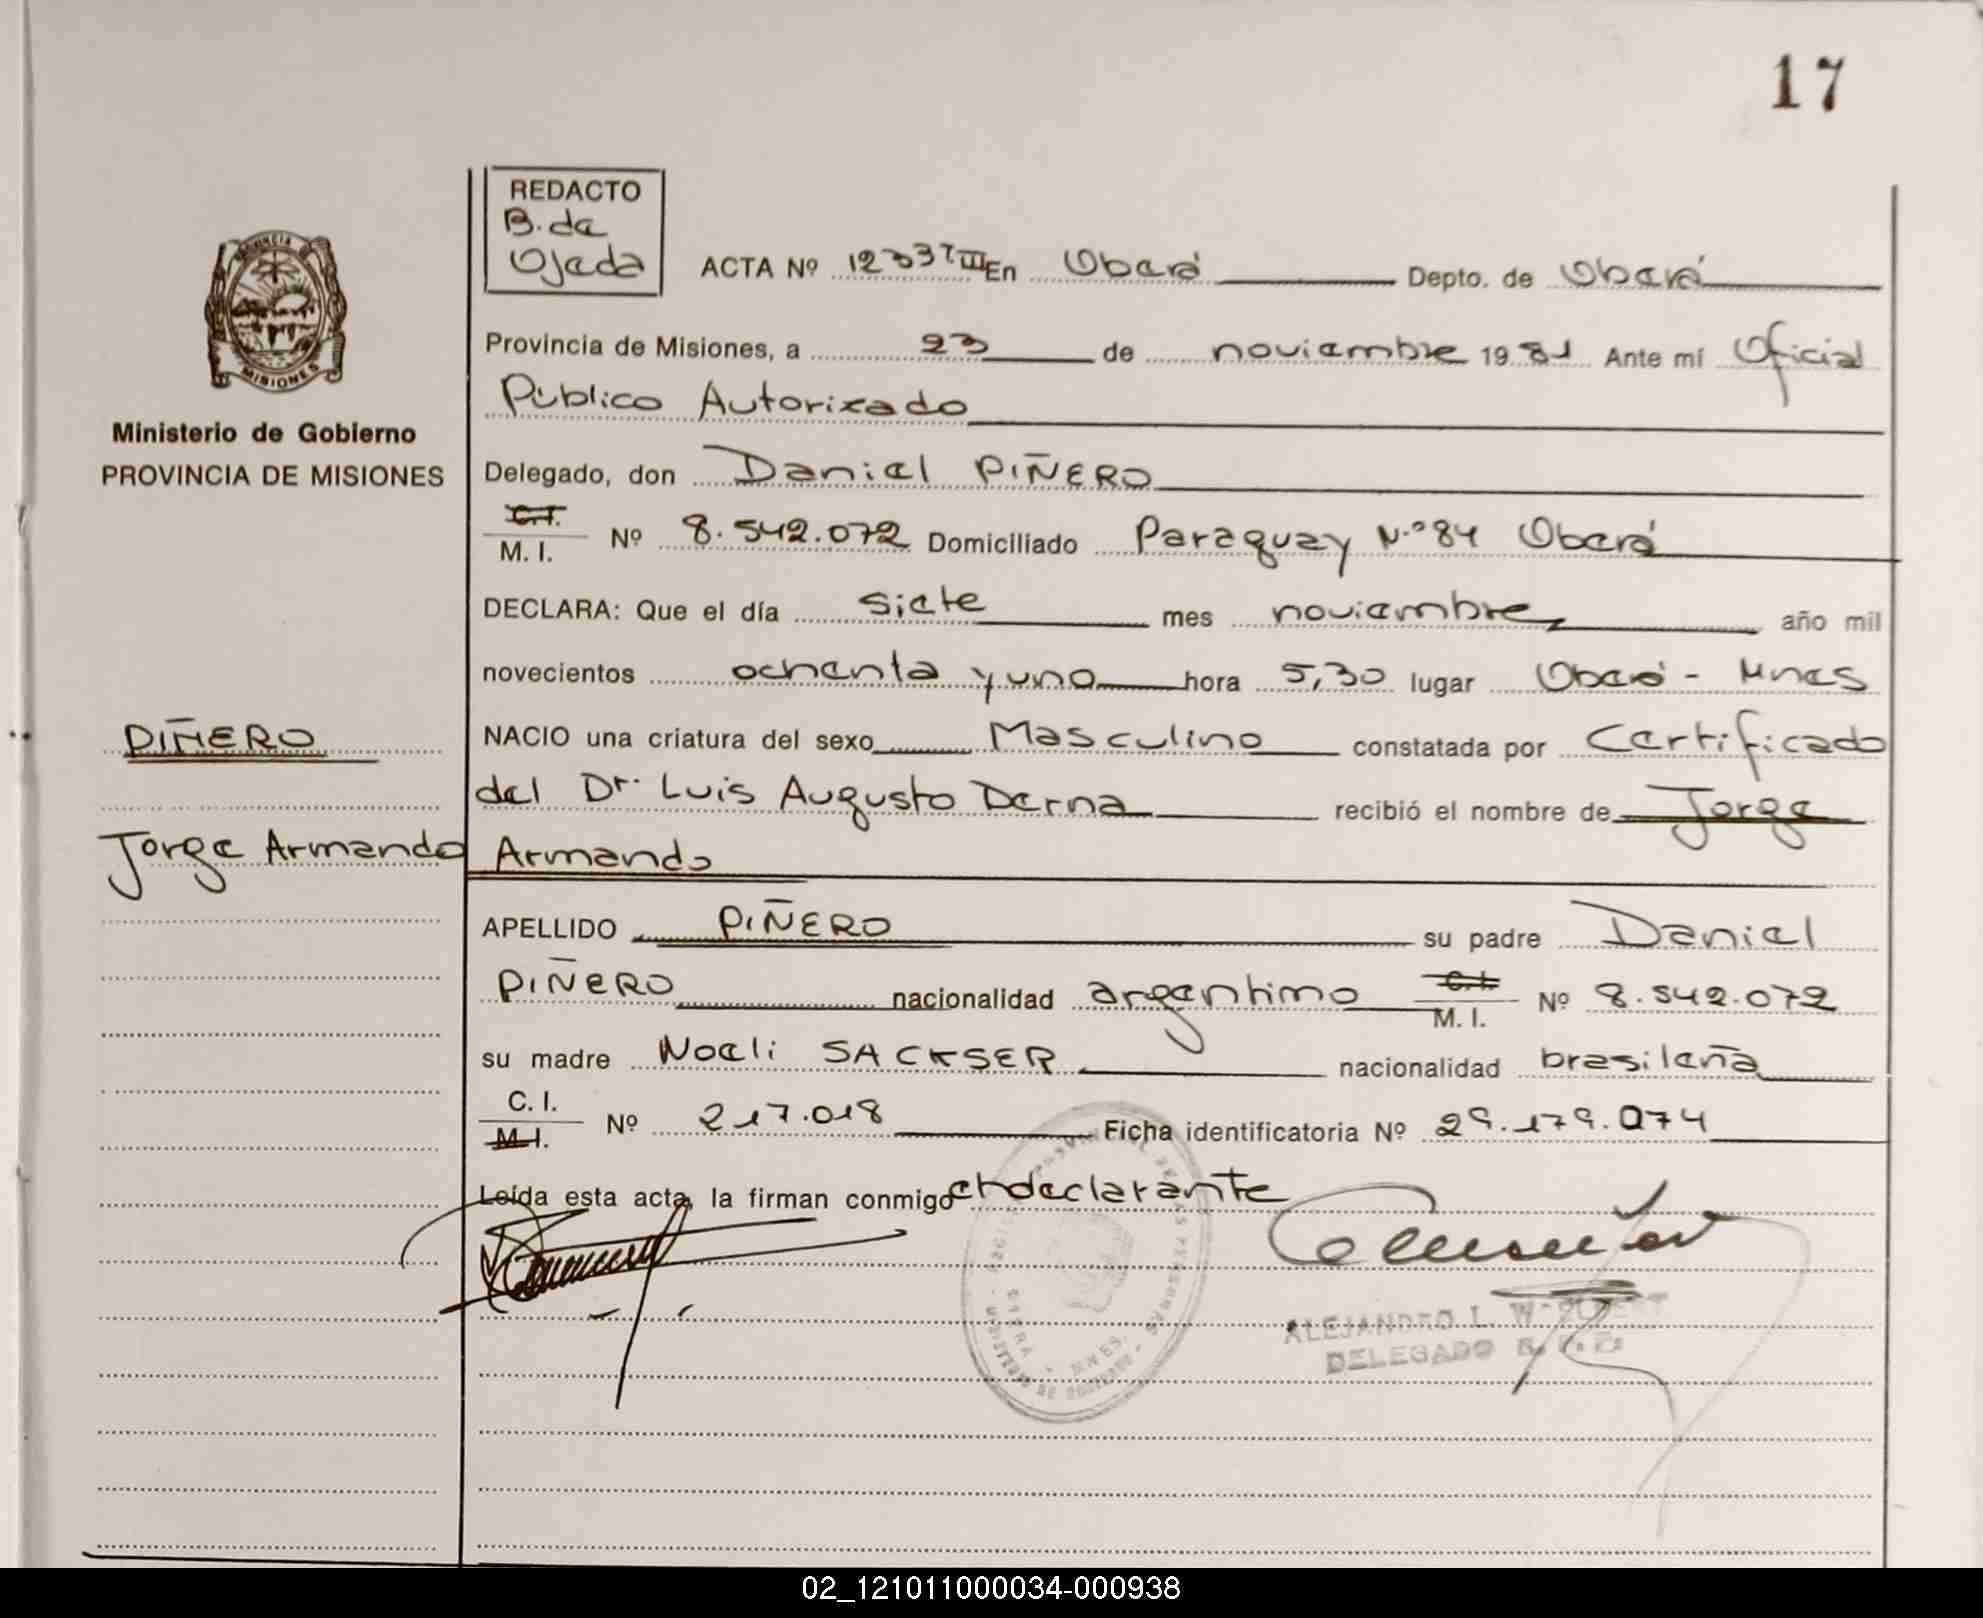 17
REDACTO
B. de
Ojeda
ACTA Nº 1233 TIII En Oberá Depto. de Oberá
Provincia de Misiones, a 23 de noviembre 1981 Ante mí Oficial
Público Autorizado
Ministerio de Gobierno
PROVINCIA DE MISIONES
Delegado, don Daniel PIÑERO
C.I.
M. I. Nº 8.542.072 Domiciliado Paraguay N.º 84 Oberá
DECLARA: Que el día siete mes noviembre año mil
novecientos ochenta y uno hora 5,30 lugar Oberá - Mnes
PIÑERO
NACIO una criatura del sexo Masculino constatada por Certificado
del Dr. Luis Augusto Derna recibió el nombre de Jorge
Jorge Armando
Armando
APELLIDO PIÑERO su padre Daniel
PIÑERO nacionalidad argentino C.I.
M. I. Nº 8.542.072
su madre Noeli SACKSER nacionalidad brasileña
C. I.
M.I. Nº 217.018 Ficha identificatoria Nº 29.179.074
Leída esta acta, la firman conmigo el declarante
ALEJANDRO L.
DELEGADO
MISIONES
02_121011000034-000938